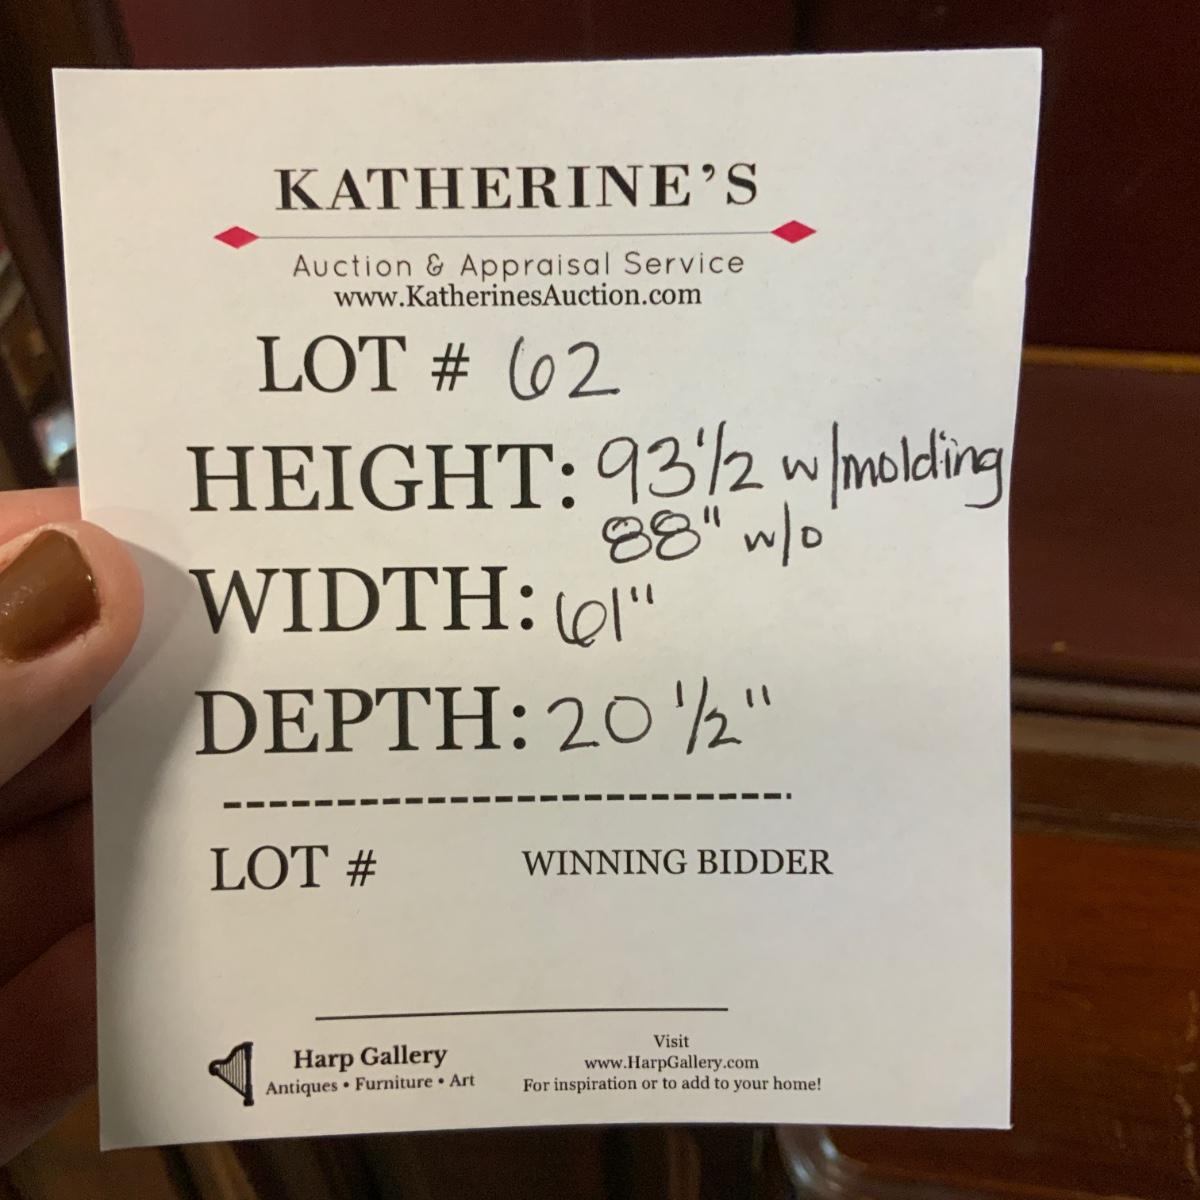 KATHERINE'S
Auction & Appraisal Service
www.KatherinesAuction.com
LOT # 62
HEIGHT: 93 1/2 w/molding
88" w/o
WIDTH: 61"
DEPTH: 20 1/2"
LOT # WINNING BIDDER
Harp Gallery
Antiques • Furniture • Art
Visit
www.HarpGallery.com
For inspiration or to add to your home!